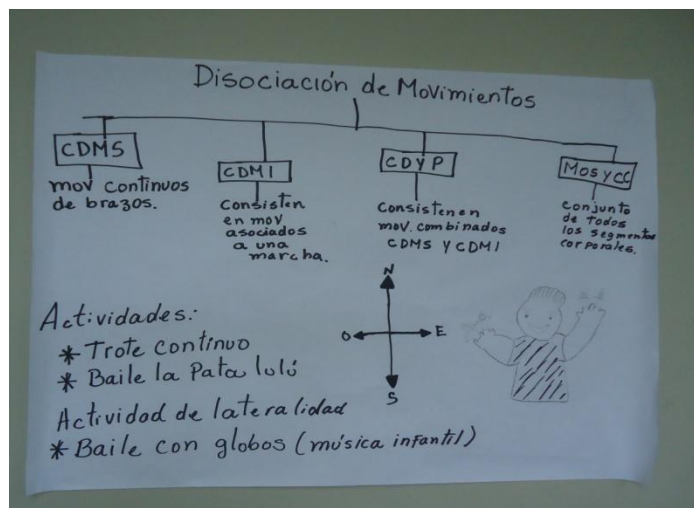 Disociación de Movimientos
CDMS
mov continuos
de brazos.
CDMI
Consisten
en mov
asociados
a una
marcha.
CDYP
Consisten en
mov. combinados
CDMS Y CDMI
Mos y CC
conjunto
de todos
los segmentos
corporales.
N
O
E
S
Actividades:
* Trote continuo
* Baile la Pata lulú
Actividad de lateralidad
* Baile con globos (música infantil)